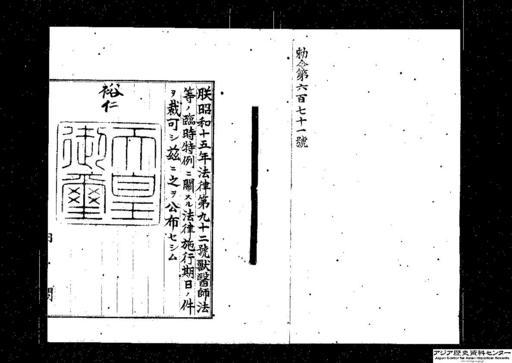 勅令第六百七十一號
朕昭和十五年法律第九十二號獸醫師法
等ノ臨時特例ニ關スル法律施行期日ノ件
ヲ裁可シ茲ニ之ヲ公布セシム
裕仁
天皇
御璽
アジア歴史資料センター
Japan Center for Asian Historical Records